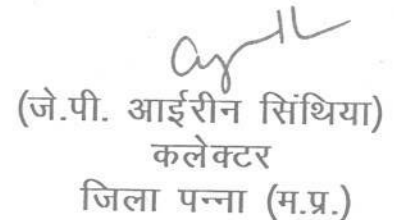 (जे.पी. आईरीन सिंथिया)
कलेक्टर
जिला पन्ना (म.प्र.)